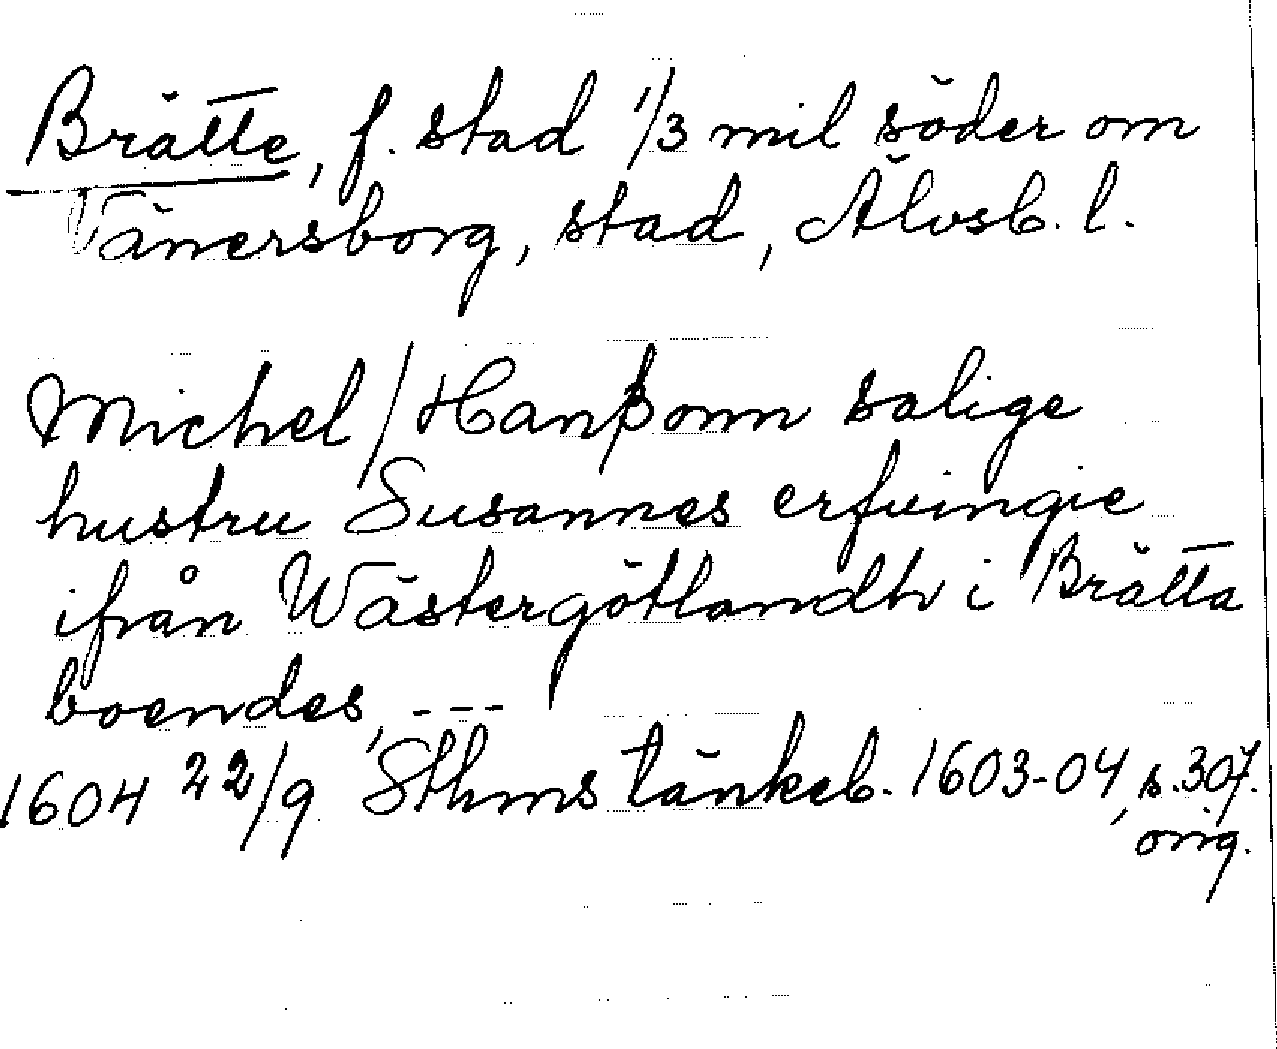 Brätte, f. stad 1/3 mil söder om
Vänersborg, stad, Älvsb. l.
Michel / Hanßonn salige
hustru Susannes erfvingie
ifrån Wästergötlandh i Brätta
boendes, ---
1604 22/9 Sthms tänkeb. 1603-04, s. 307.
orig.